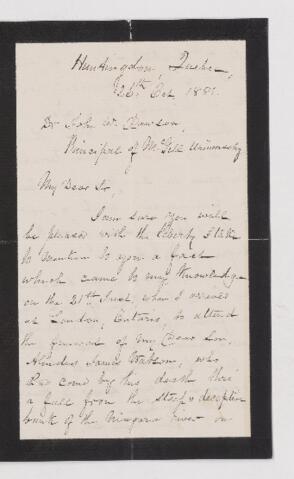 Huntingdon, Quebec,
26th Oct, 1881.
Dr John W. Dawson,
Principal of McGill University
My Dear Sir,
I am sure you will
be pleased with the liberty I take
to mention to you a fact
which came to my knowledge
on the 21st Inst, when I arrived
at London, Ontario, to attend
the funeral of my Dear Son,
James Watson, who
had come by his death thro'
a fall from the steep & deceptive
bank of the Niagara river on